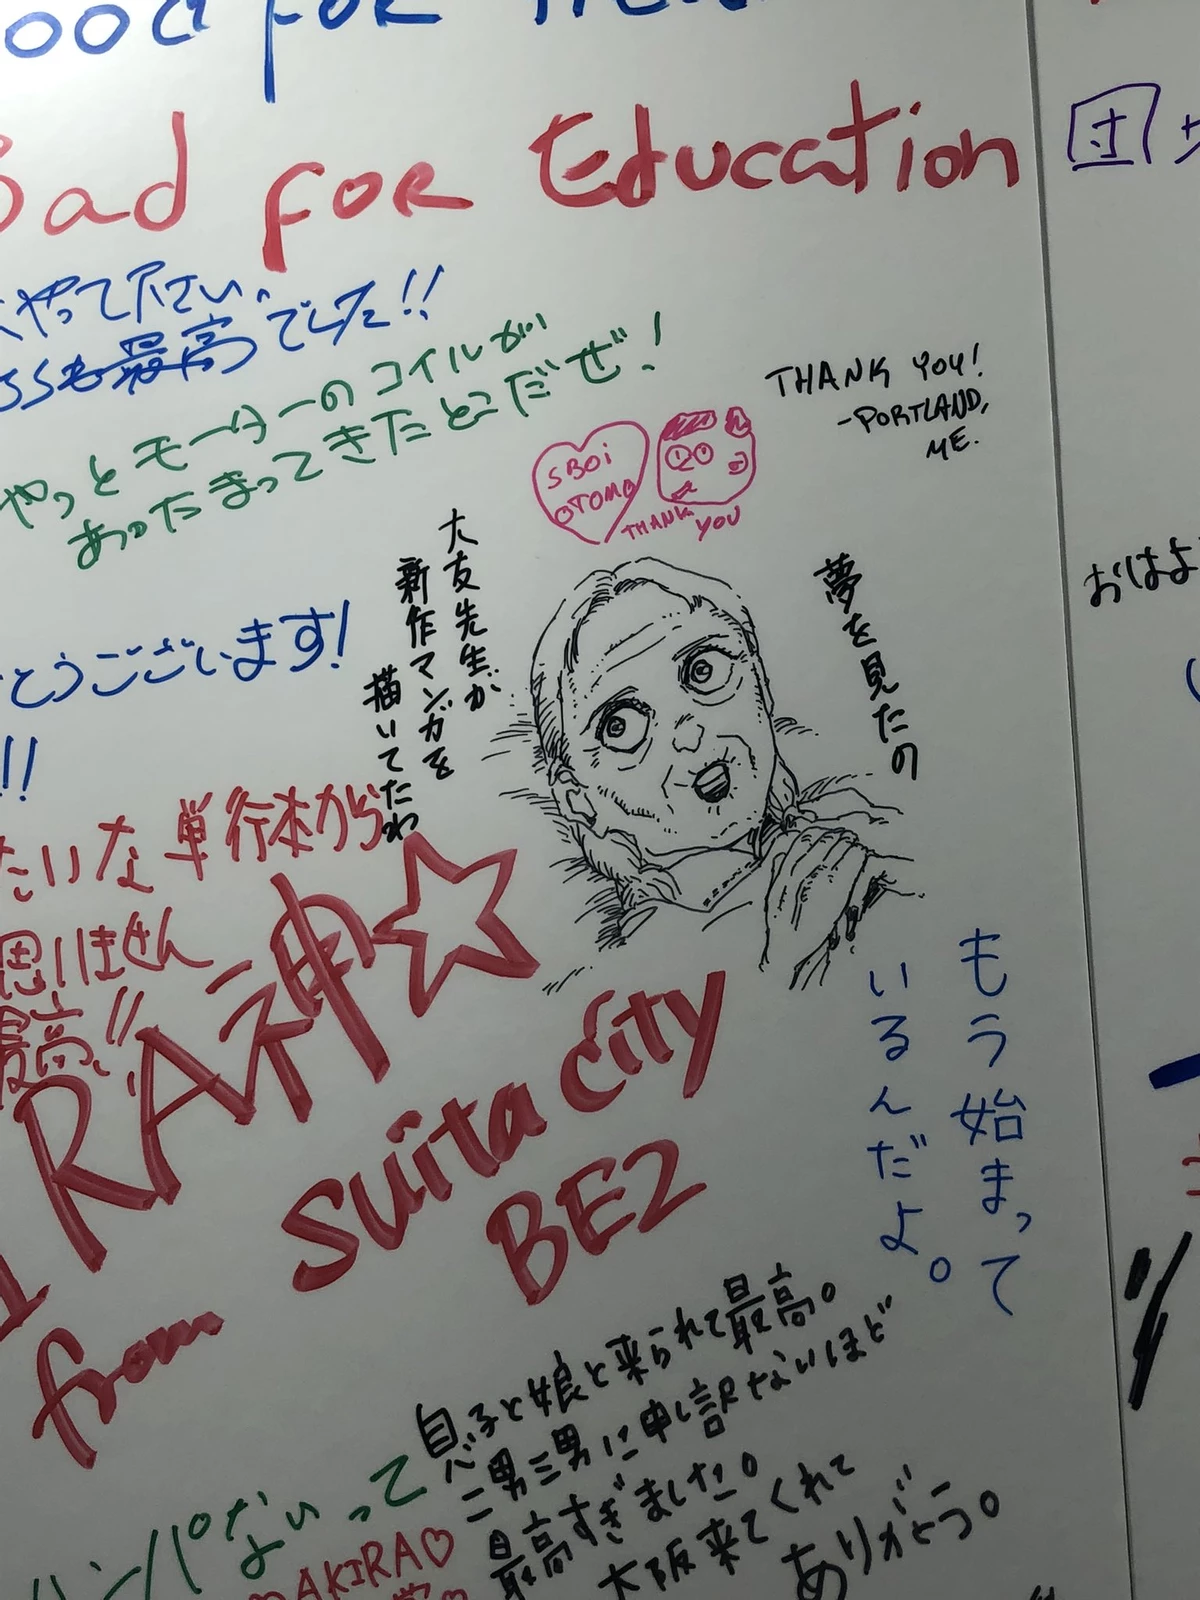 FOR
Bad for Education
団
やって下さい。
SSも最高でした!!
やっとモーターのコイルが
あったまってきたとこだぜ!
THANK YOU!
-PORTLAND,
ME.
SBOi
OTOMO
THANK
YOU
大友先生が
新作マンガを
描いてたわ
夢を見たの
おはよ
とうございます!
!!
たいな 単行本から
思いません
最高!!
RA神☆
from suita city
BE2
もう始まって
いるんだよ。
息子と娘と来られて最高。
二男三男に申し訳ないほど
最高すぎました。
大阪来てくれて
ありがとう。
ハンパないって
♡AKIRA♡